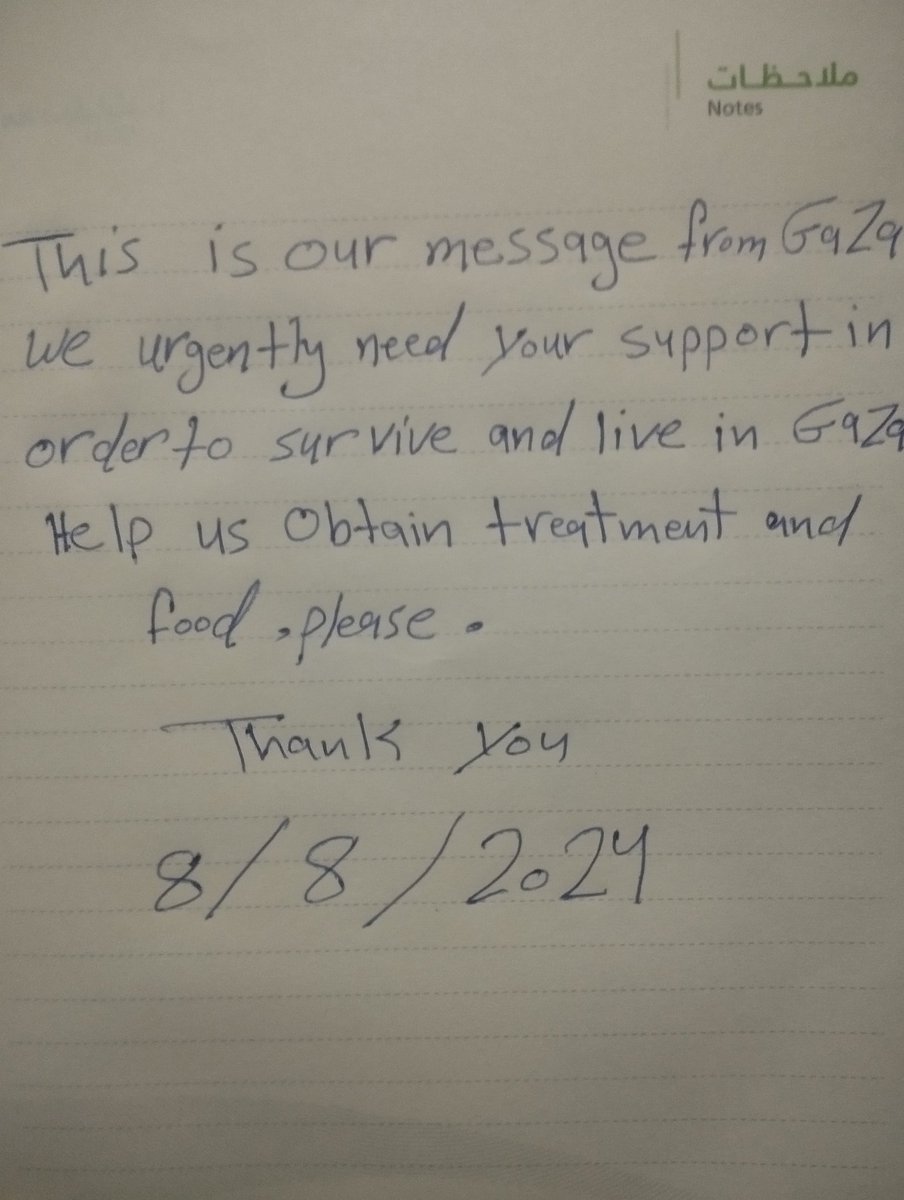 ملاحظات
Notes
This is our message from GaZa
we urgently need your support in
order to survive and live in GaZa
Help us Obtain treatment and
food , please .
Thank you
8/8/2024